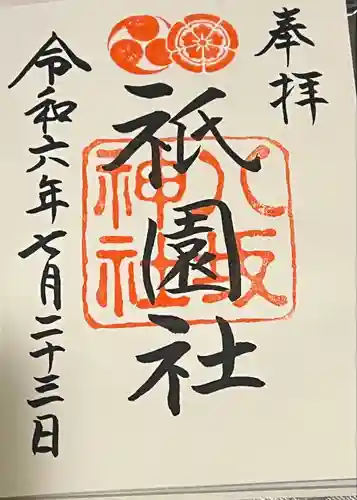 奉拝
八坂神社
祇園社
令和六年七月二十三日